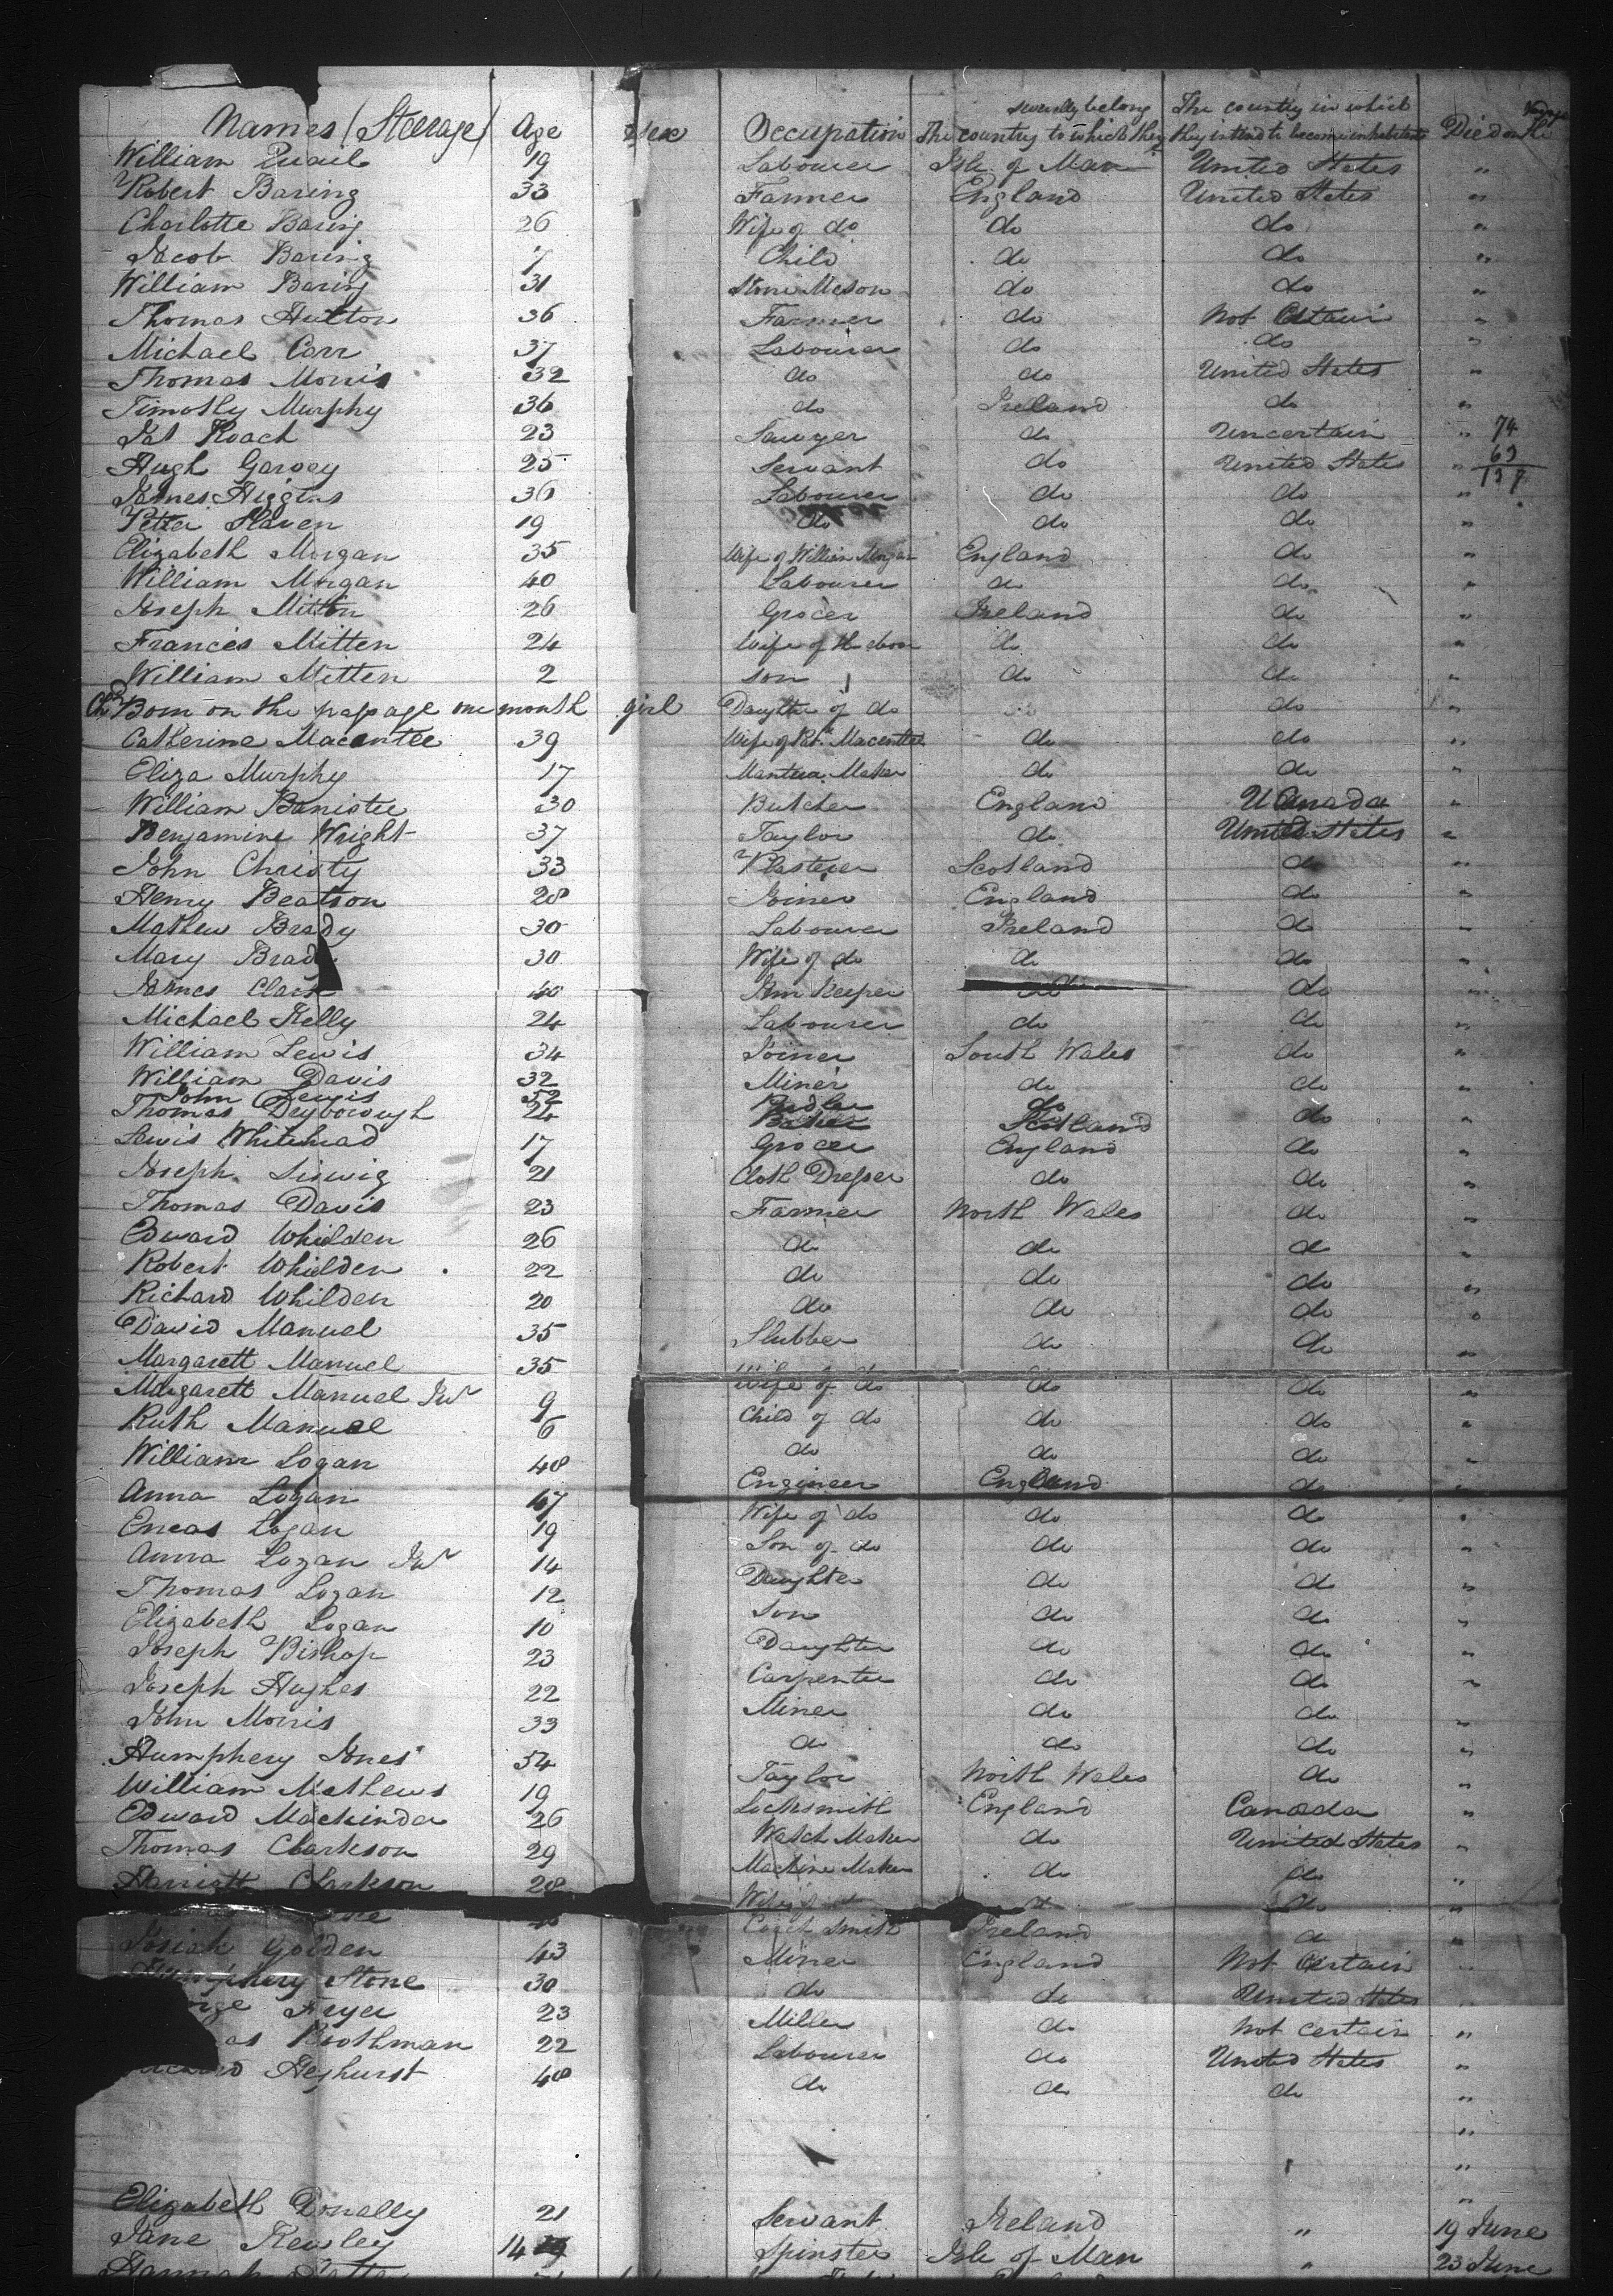 Names (Steerage) Age Sex Occupation The country to which they severally belong The country in which they intend to become inhabitants Died on the Voyage
William Quail 19 Labourer Isle of Man United States "
Robert Baring 33 Farmer England United States "
Charlotte Baring 26 Wife of do do do "
Jacob Baring 7 Child do do "
William Baring 31 Stone Mason do do "
Thomas Hulton 36 Farmer do Not Certain "
Michael Carr 37 Labourer do do "
Thomas Morris 32 do do United States "
Timothy Murphy 36 do Ireland do "
Pat Roach 23 Sawyer do Uncertain " 74
Hugh Garvey 25 Servant do United States " 63
James Higgins 36 Labourer do do " 137
Petter Slaven 19 do do do "
Elizabeth Morgan 35 Wife of William Morgan England do "
William Morgan 40 Labourer do do "
Joseph Mitton 26 Grocer Ireland do "
Frances Mitten 24 Wife of the above do do "
William Mitten 2 son do do "
Born on the passage one month girl Daughter of do do "
Catherine Macentee 39 Wife of Pat. Macentee do do "
Eliza Murphy 17 Mantua Maker do do "
William Banister 30 Butcher England U Canada "
Benjamine Wright 37 Taylor do United States "
John Christy 33 Plasterer Scotland do "
Henry Beatson 28 Joiner England do "
Mathew Brady 30 Labourer Ireland do "
Mary Brady 30 Wife of do do do "
James Clark 40 Inn Keeper do do "
Michael Kelly 24 Labourer do do "
William Lewis 34 Joiner South Wales do "
William Davis 32 Miner do do "
John Lewis 52 do
Thomas Dryborough 24 Baker Scotland do "
Lewis Whitehead 17 Grocer England do "
Joseph 21 Cloth Dresser do do "
Thomas Davis 23 Farmer North Wales do "
Edward Whilden 26 do do do "
Robert Whilden 22 do do do "
Richard Whilden 20 do do do "
David Manuel 35 Slubber do do "
Margarett Manuel 35 Wife of do do do "
Margarett Manuel Jur 9 Child of do do do "
Ruth Manuel 6 do do do "
William Logan 48 Engineer England do "
Anna Logan 47 Wife of do do do "
Eneas Logan 19 Son of do do do "
Anna Logan Jur 14 Daughter do do "
Thomas Logan 12 Son do do "
Elizabeth Logan 10 Daughter do do "
Joseph Bishop 23 Carpenter do do "
Joseph Hughes 22 Miner do do "
John Morris 33 do do do "
Humphery Jones 54 Taylor North Wales do "
William Mathews 19 Locksmith England Canada "
Edward Mackinder 26 Watch Maker do United States "
Thomas Clarkson 29 Machine Maker do do "
Harriett Clarkson 28 Wife of do do do "
Coach Smith Ireland do "
Josiah Golden 43 Miner England Not Certain "
Humphery Stone 30 do do United States "
Fryer 23 Miller do Not certain "
Boothman 22 Labourer do United States "
Heyhurst 48 do do do "
"
"
"
Elizabeth Donally 21 Servant Ireland " 19 June
Jane Kewley 14 Spinster Isle of Man " 23 June
Hannah